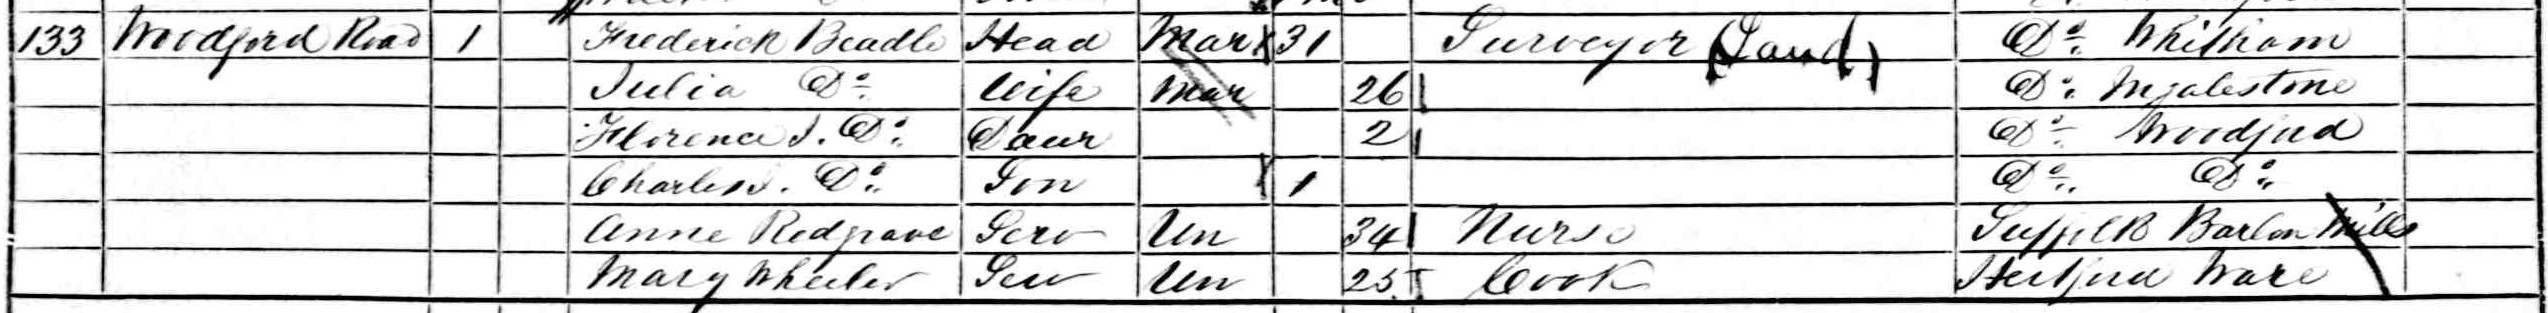 133 Woodford Road 1 Frederick Beadle Head Mar 31 Surveyor (Land) Do. Whitham
Julia Do. Wife Mar 26 Do. Ingalestone
Florence J. Do. Daur 2 Do. Woodford
Charles J. Do. Son 1 Do. Do.
Anne Redgrave Serv Un 34 Nurse Suffolk Barton Mills
Mary Wheeler Serv Un 25 Cook Hertford Ware